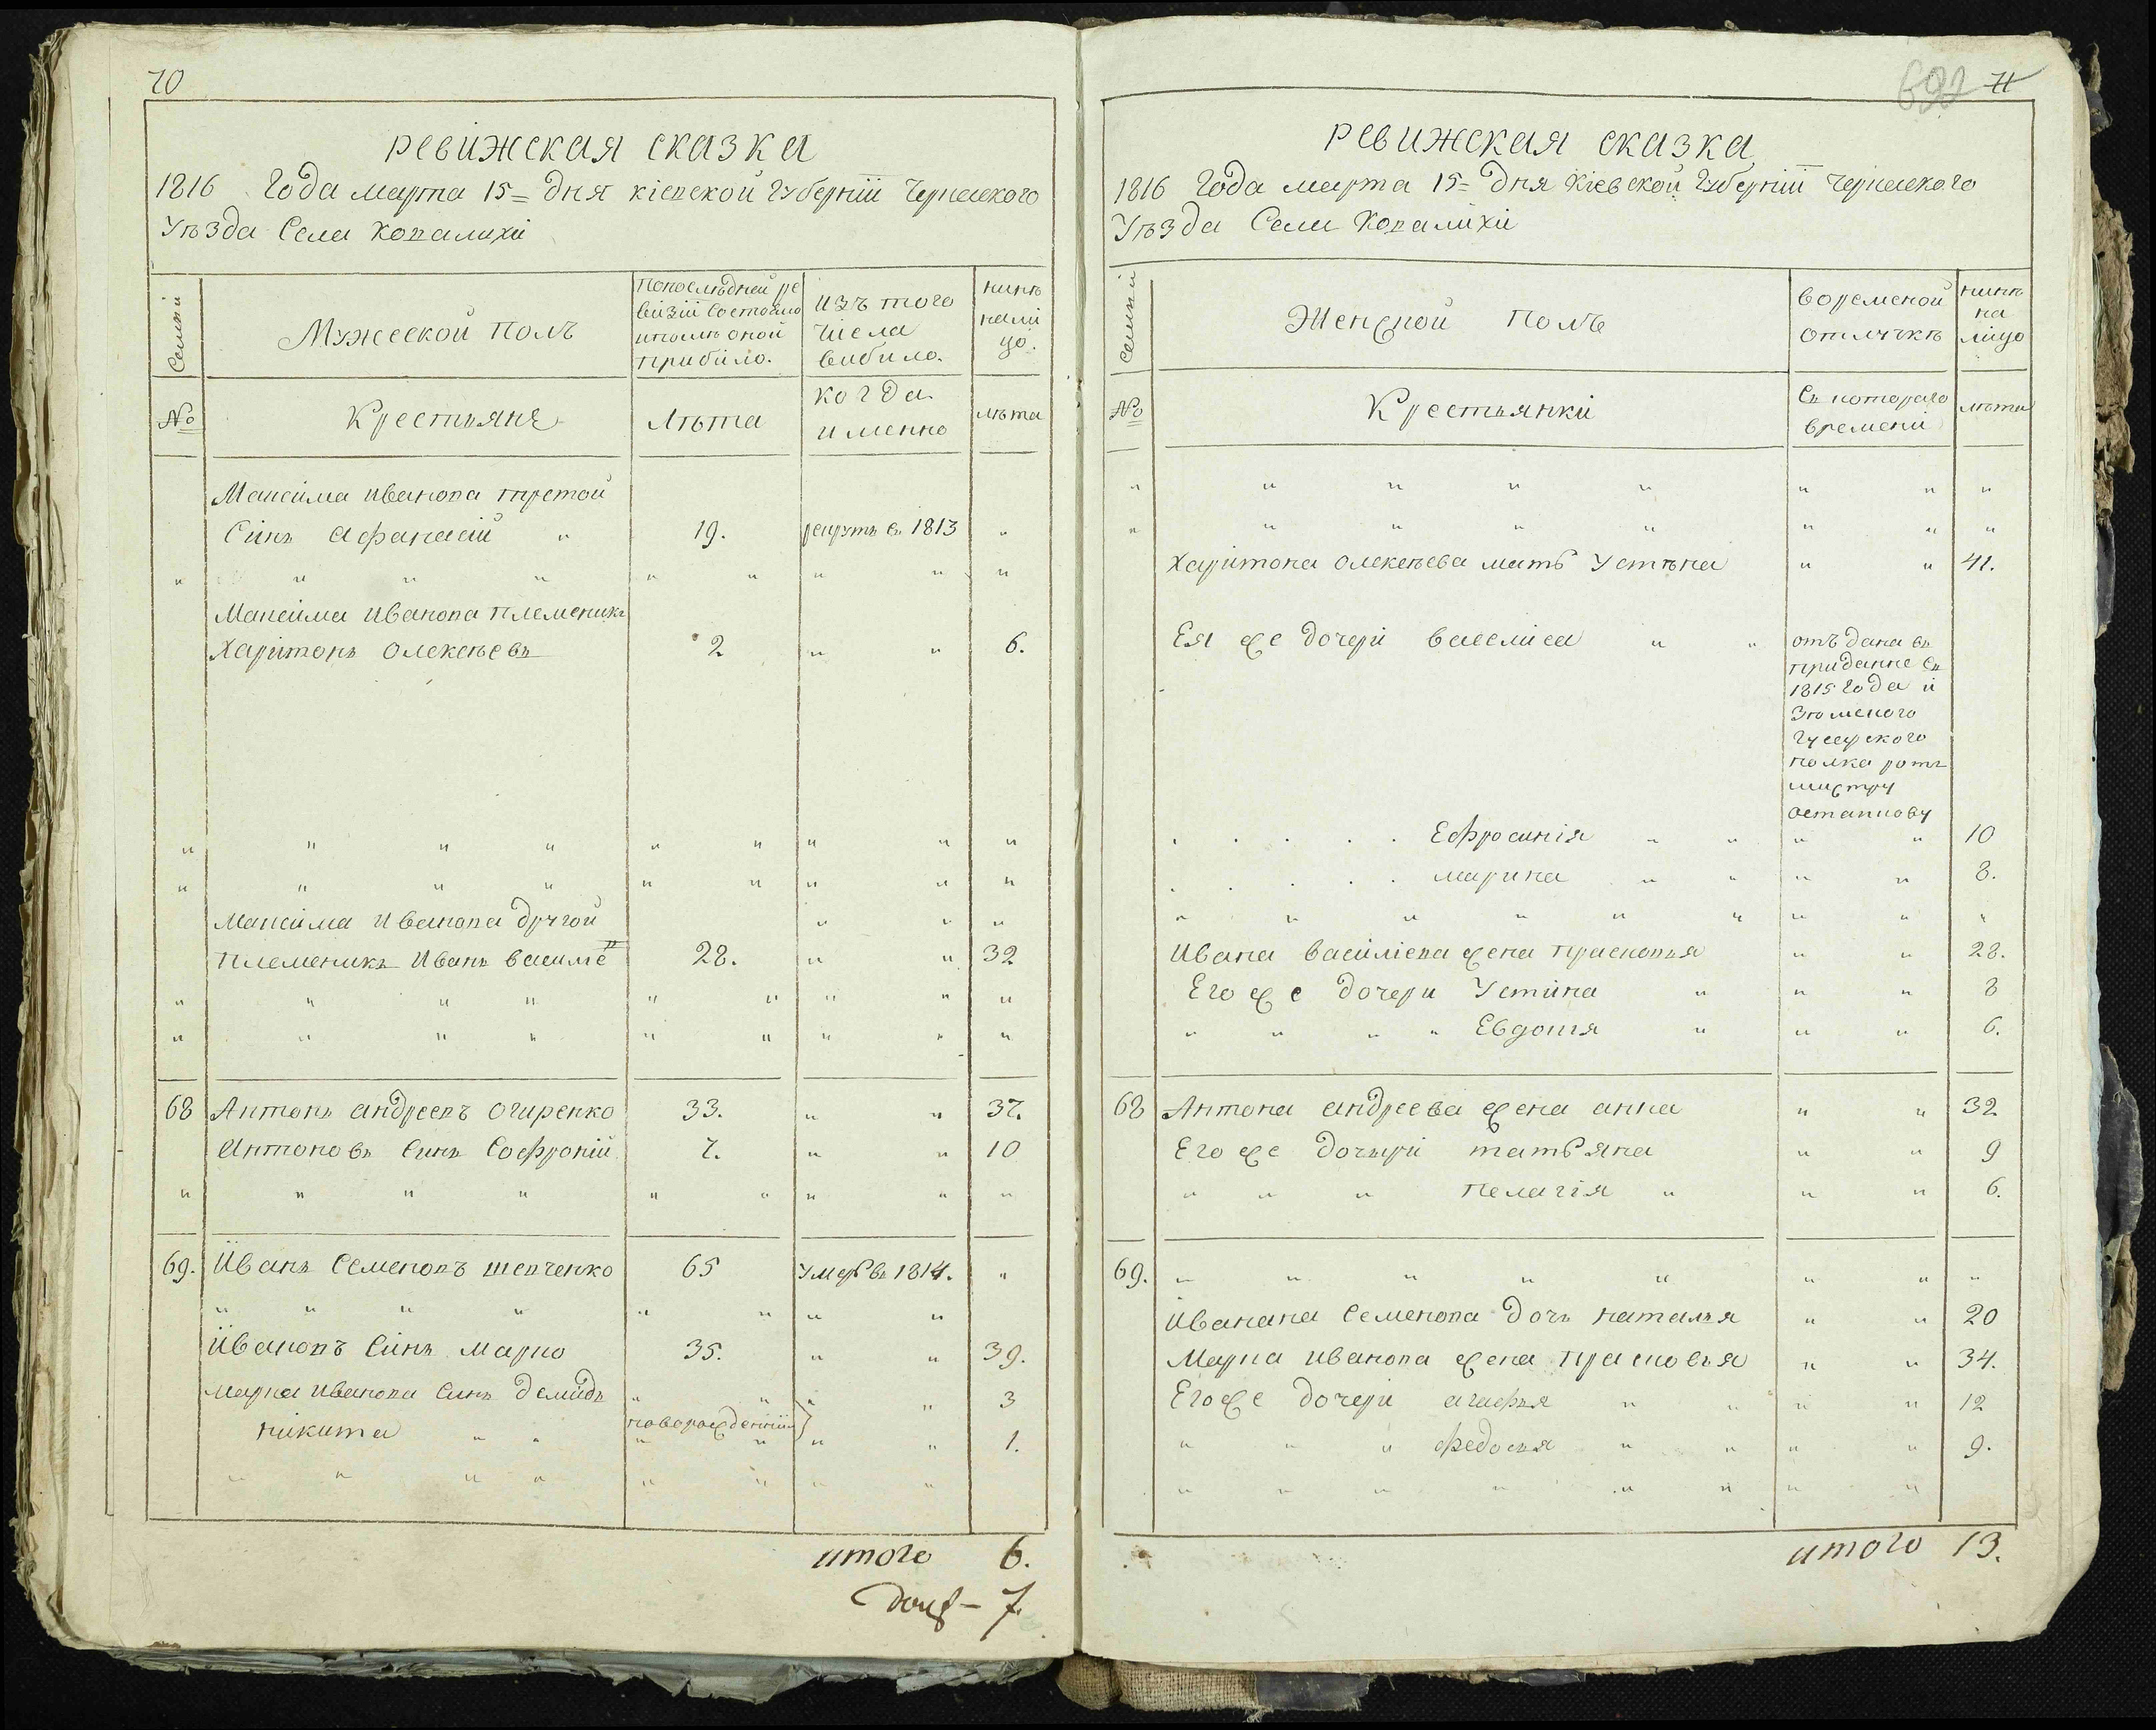 70
ревижская сказка
1816 Года марта 15= дня кіевской Губерніи Черкаского
Уѣзда Села Ковалихи
Семьи
Мужеской полъ
попослѣдней ре
визіи состояло
ипослѣ оной
прибило.
изъ того
числа
вибило.
нинѣ
нали
цо.
№
Крестьяне
лѣта
когда
именно
лѣта
Максима иванова третой
Синъ афанасій " 19. рекрутъ въ 1813 "
" " " " " " " " "
Максима иванова племеникъ
Харитонъ олексѣевъ 2 " " 6.
" " " " " " " " "
" " " " " " " " "
Максима иванова другой " " "
племеникъ иванъ василіе 28. " " 32
" " " " " " " " "
" " " " " " " " "
68 Антонъ андреевъ огиренко 33. " " 37.
антоновъ синъ Софроній 7. " " 10
" " " " " " " " "
69. Иванъ Семеновъ шевченко 65 умеръ въ 1814. "
" " " " " " " "
Ивановъ синъ марко 35. " " 39.
марка иванова синъ демидъ " " " " 3
никита " " новорожденніи " " 1.
" " " " " " " "
итого 6.
7.
692 71
ревижская сказка
1816 Года марта 15= дня кіевской Губерніи черкаского
Уѣзда Села Ковалихи
Семьи
Женской полъ
вовременой
отлучкѣ
нинѣ
на
лицо
№
Крестьянки
съ котораго
времени
лѣта
" " " " " " " "
" " " " " " " "
Харитона олексѣева мать Устѣна " " 41.
Ея же дочери василиса " " отъдана въ
приданне съ
1815 года и
гусарского
полка рот
мистру
остапкову
. . . . . Ефросинія " " " " 10
. . . . . марина " " " " 8.
" " " " " " " " "
ивана василіева жена прасковья " " 28.
Его же дочери Устина " " " 8
" " " " Евдокия " " " 6.
68 Антона андреева жена анна " " 32
Его же дочери татьяна " " 9
" " " пелагія " " " 6.
69. " " " " " " " "
Иванана семенова дочъ наталья " " 20
Марка иванова жена прасковья " " 34.
Его же дочери агафья " " " " 12
" " " федосья " " " " 9.
" " " " " " " "
итого 13.